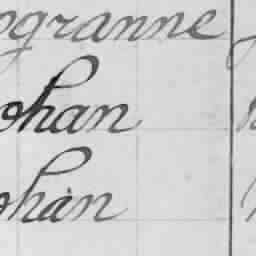 ngranne
ohan
ohan